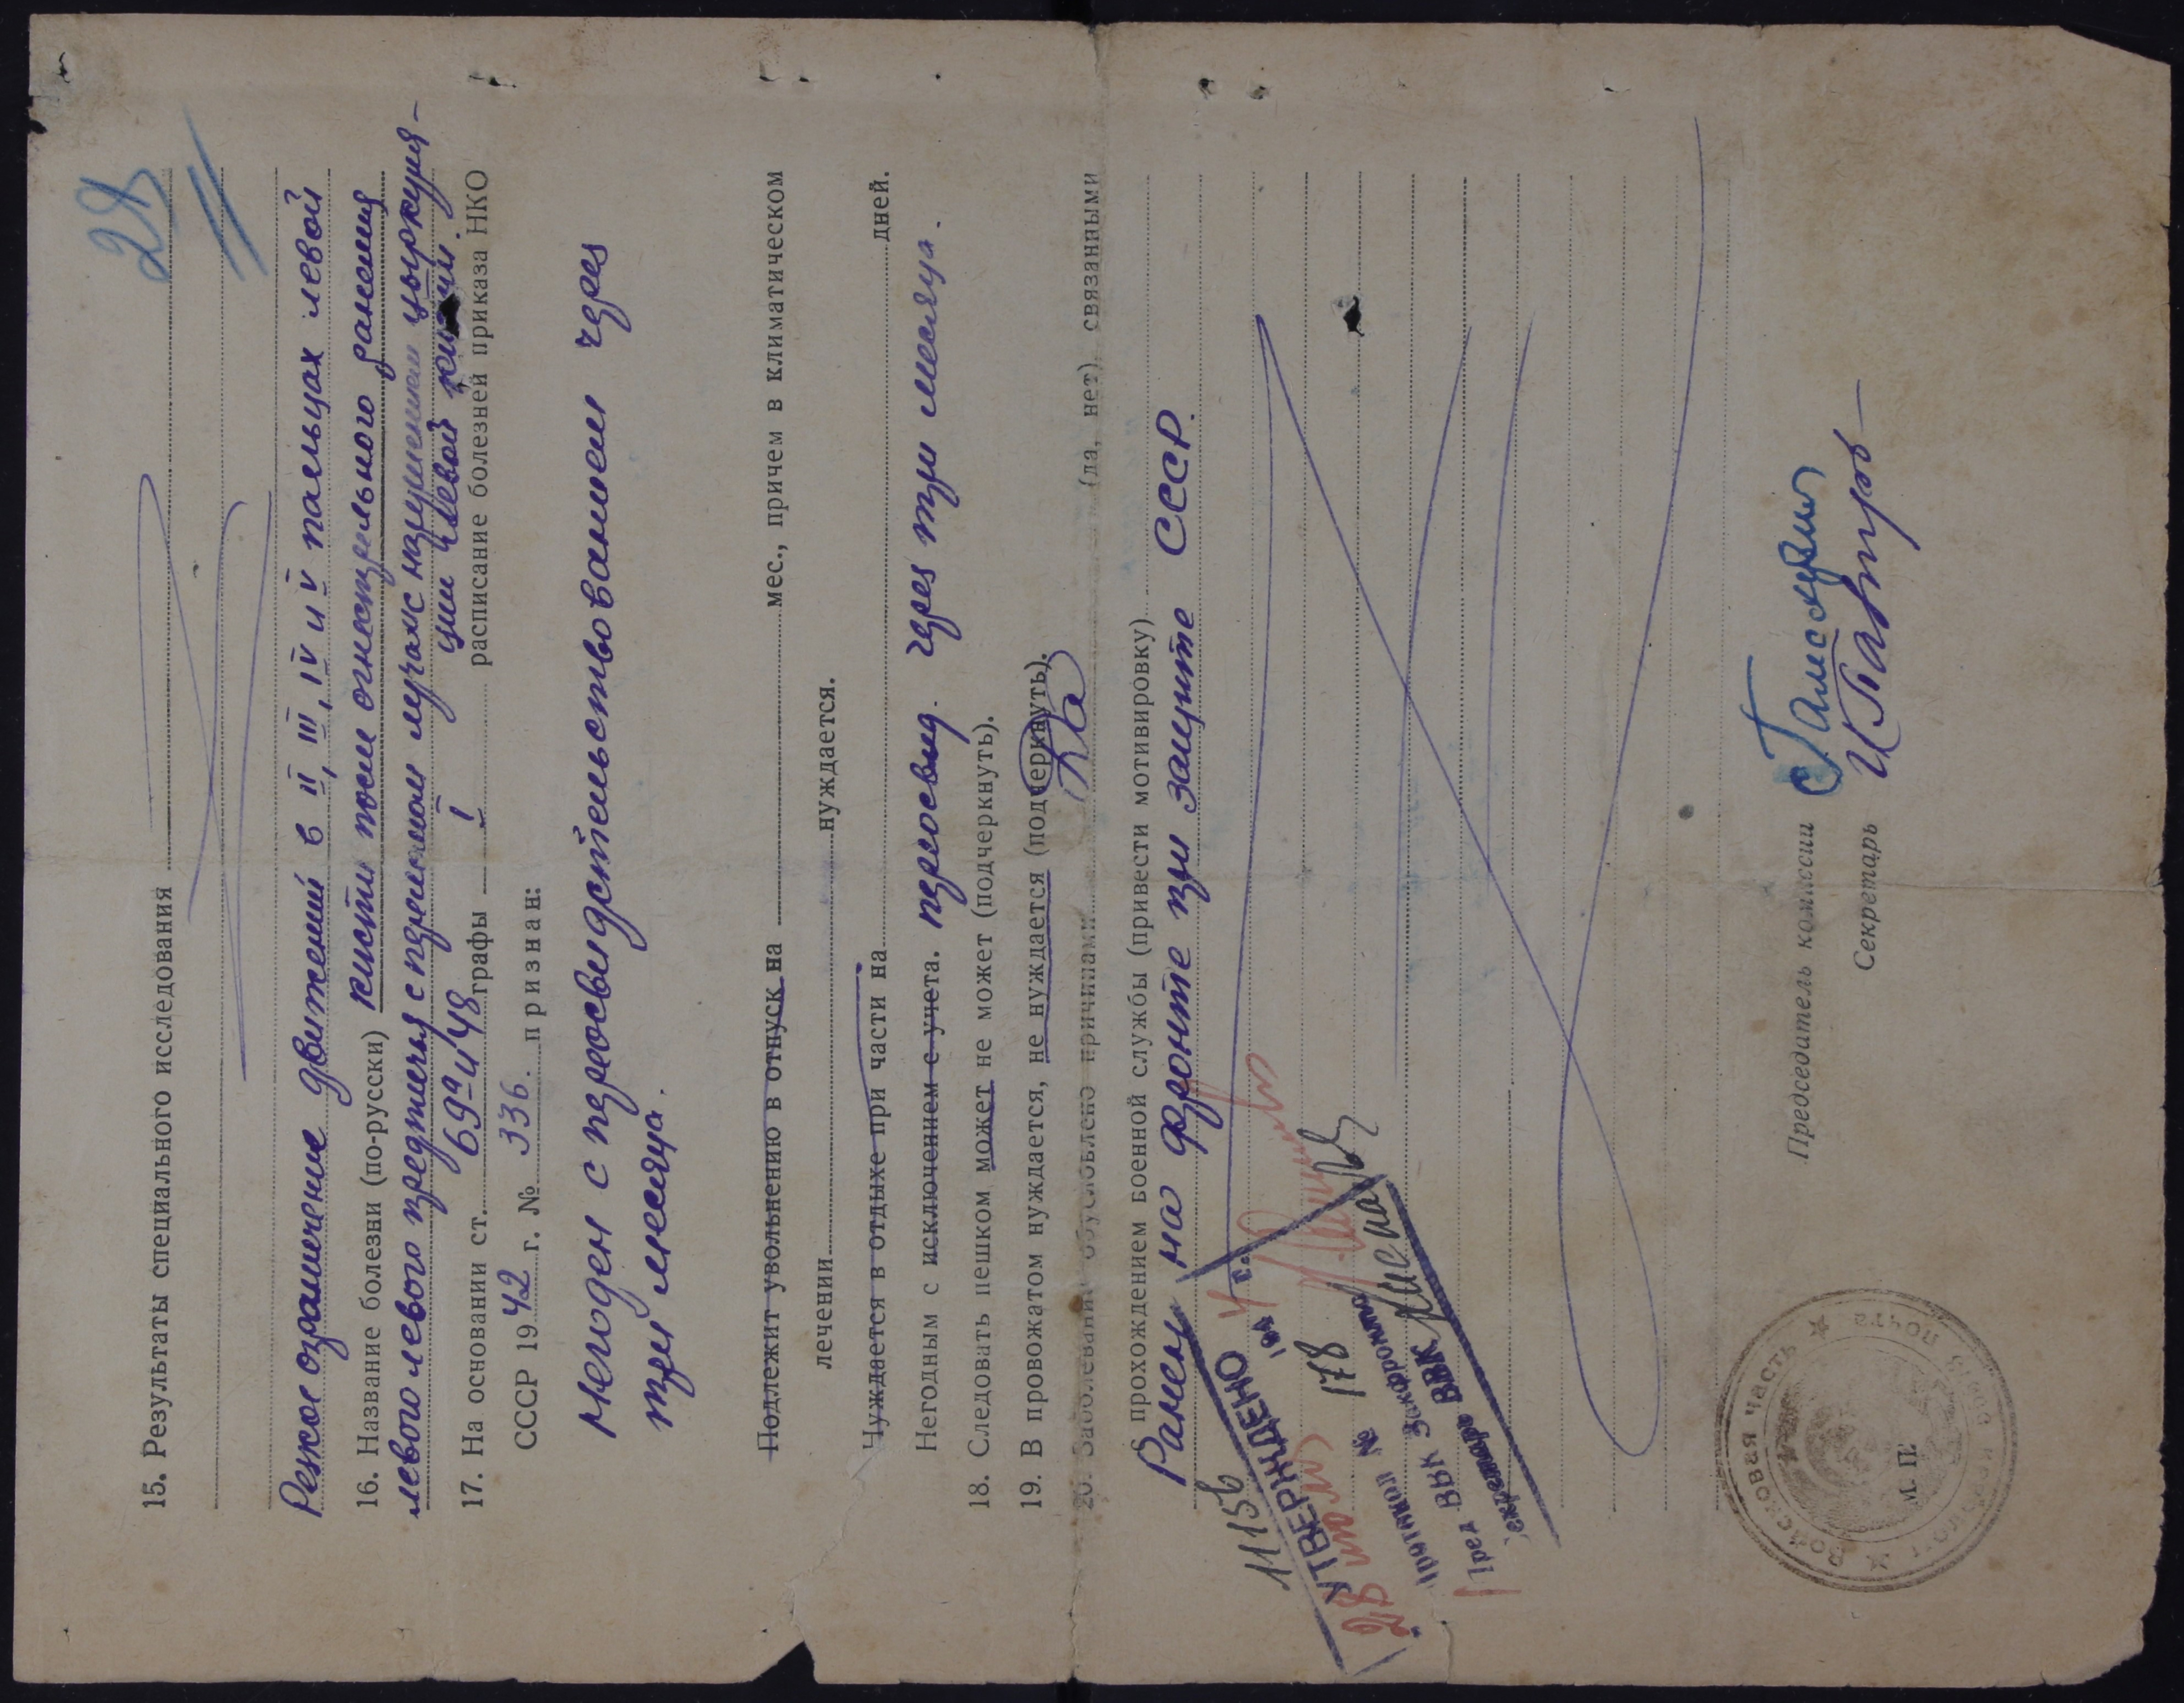 28
15. Результаты специального исследования
Резкое ограничение движений в II, III, IV и V пальцах левой
16. Название болезни (по-русски) кисти после огнестрельного ранения
левого предплечья с переломом луча с нарушением циркуля-
ции левой кисти.
17. На основании ст. 69а и 48 графы I расписание болезней приказа НКО
СССР 1942 г. № 336. признан:
Негоден с переосвидетельствованием через
три месяца.
Подлежит увольнению в отпуск на мес., причем в климатическом
лечении нуждается.
Нуждается в отдыхе при части на дней.
Негодным с исключением с учета. переосвид. через три месяца.
18. Следовать пешком может не может (подчеркнуть).
19. В провожатом нуждается, не нуждается (подчеркнуть).
20. Заболевание обусловлено причинами Да (да, нет), связанными
с прохождением военной службы (привести мотивировку)
Ранен на фронте при защите СССР.
11156
УТВЕРЖДЕНО
28 194 4 г.
Протокол № 178
Пред ВВК Закфронта
Секретарь ВВК
Председатель комиссии
Секретарь
М. П.
Войсковая часть
почта